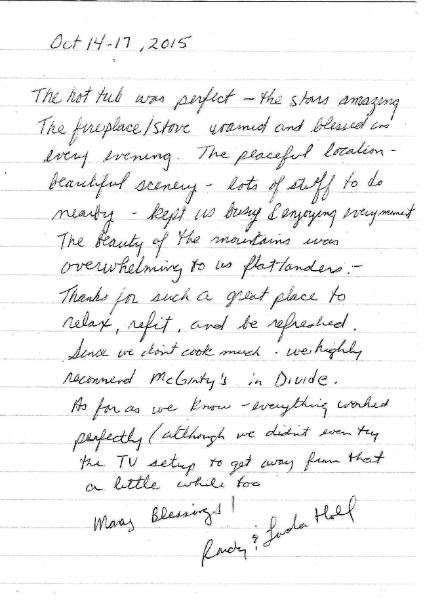 Oct 14-17, 2015
The hot tub was perfect - the stars amazing
The fireplace/stove warmed and blessed us
every evening. The peaceful location -
beautiful scenery - lots of stuff to do
nearby - kept us busy & enjoying every moment
The beauty of the mountains was
overwhelming to us flatlanders. -
Thanks for such a great place to
relax, refit, and be refreshed.
Since we don't cook much - we highly
recommend McGinty's in Divide.
As far as we know - everything worked
perfectly (although we didn't even try
the TV setup to get away from that
a little while too
Many Blessings!
Randy & Linda